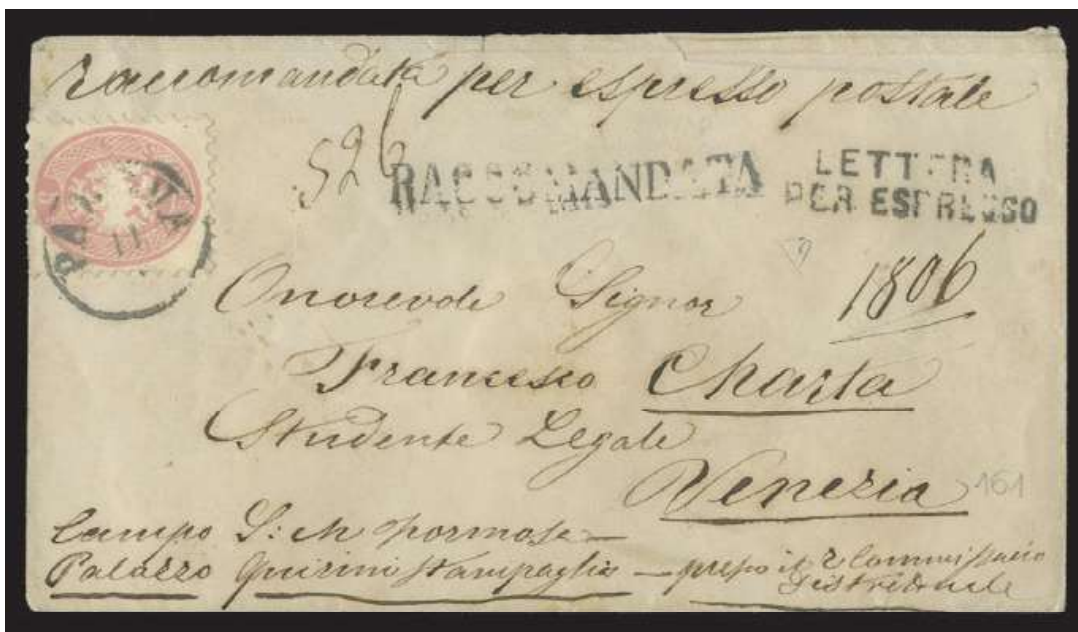 Raccomandata per espresso postale
526
RACCOMANDATA
LETTERA
PER ESPRESSO
PALMA
11
1806
Onorevole Signor
Francesco Charla
Studente Legale
Venezia
161
Campo S: M Formosa —
Palazzo Quirini Stampaglia — presso il R Commissario
Distrettuale